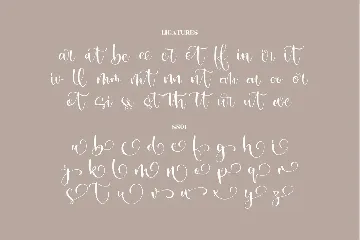 LIGATURES
ar at be ee er et ff in ir it
iv ll mm mt nn nt oh os ov or
et si ss st th tt ur ut we
SS01
a b c d e f g h i
j k l m n o p q r
s t u v w x y z